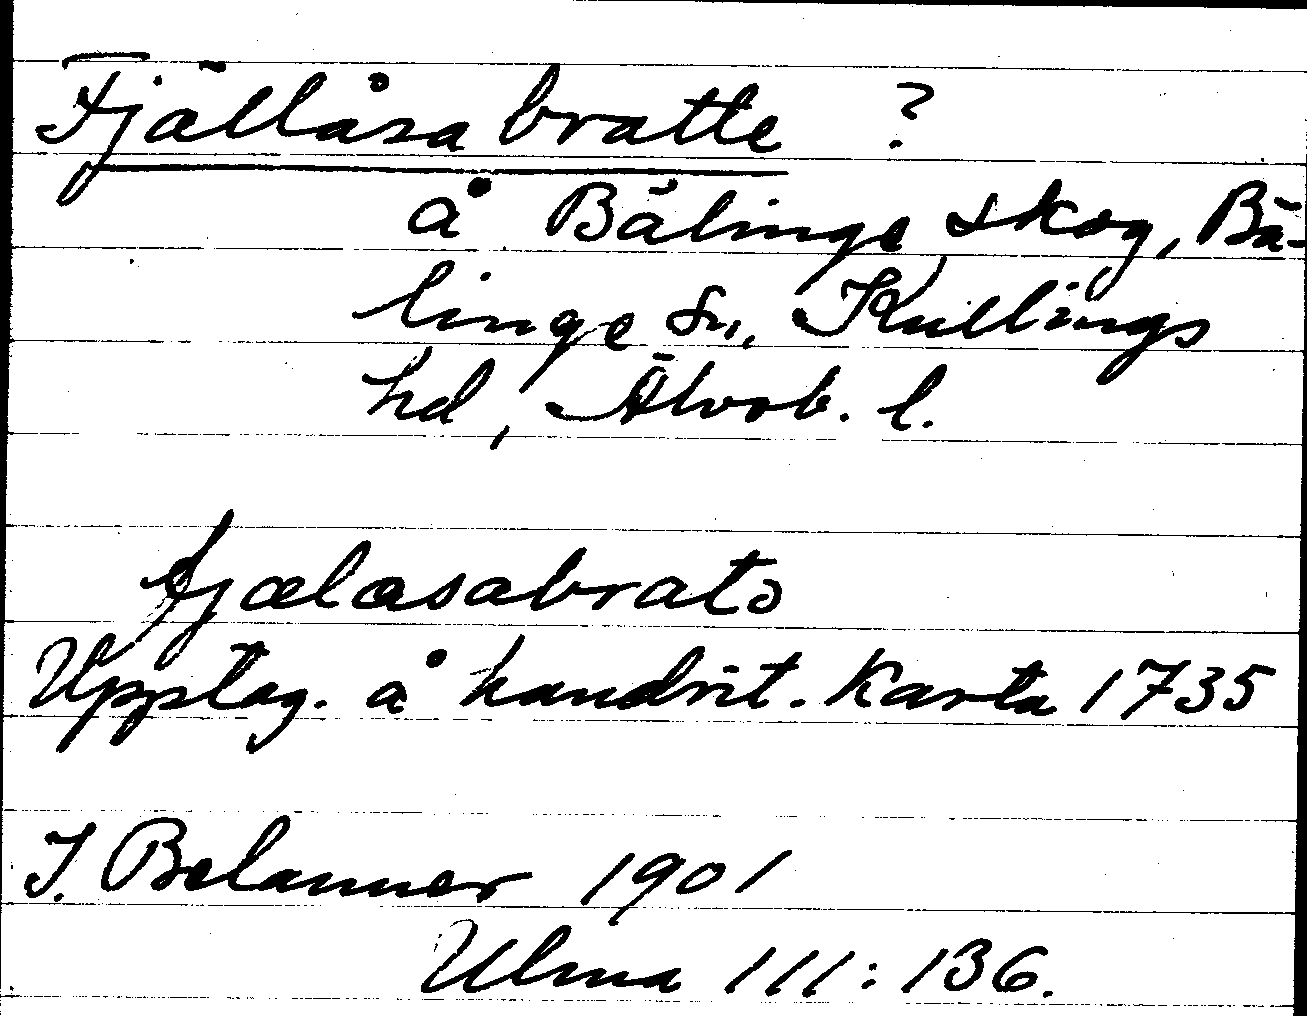 Fjällåsabratte ?
å Bälinge skog, Bä-
linge sn, Kullings
hd, Älvsb. l.
fjælasabrato
Upptag. å handrit. karta 1735
J. Belanner 1901
Ulma 111:136.